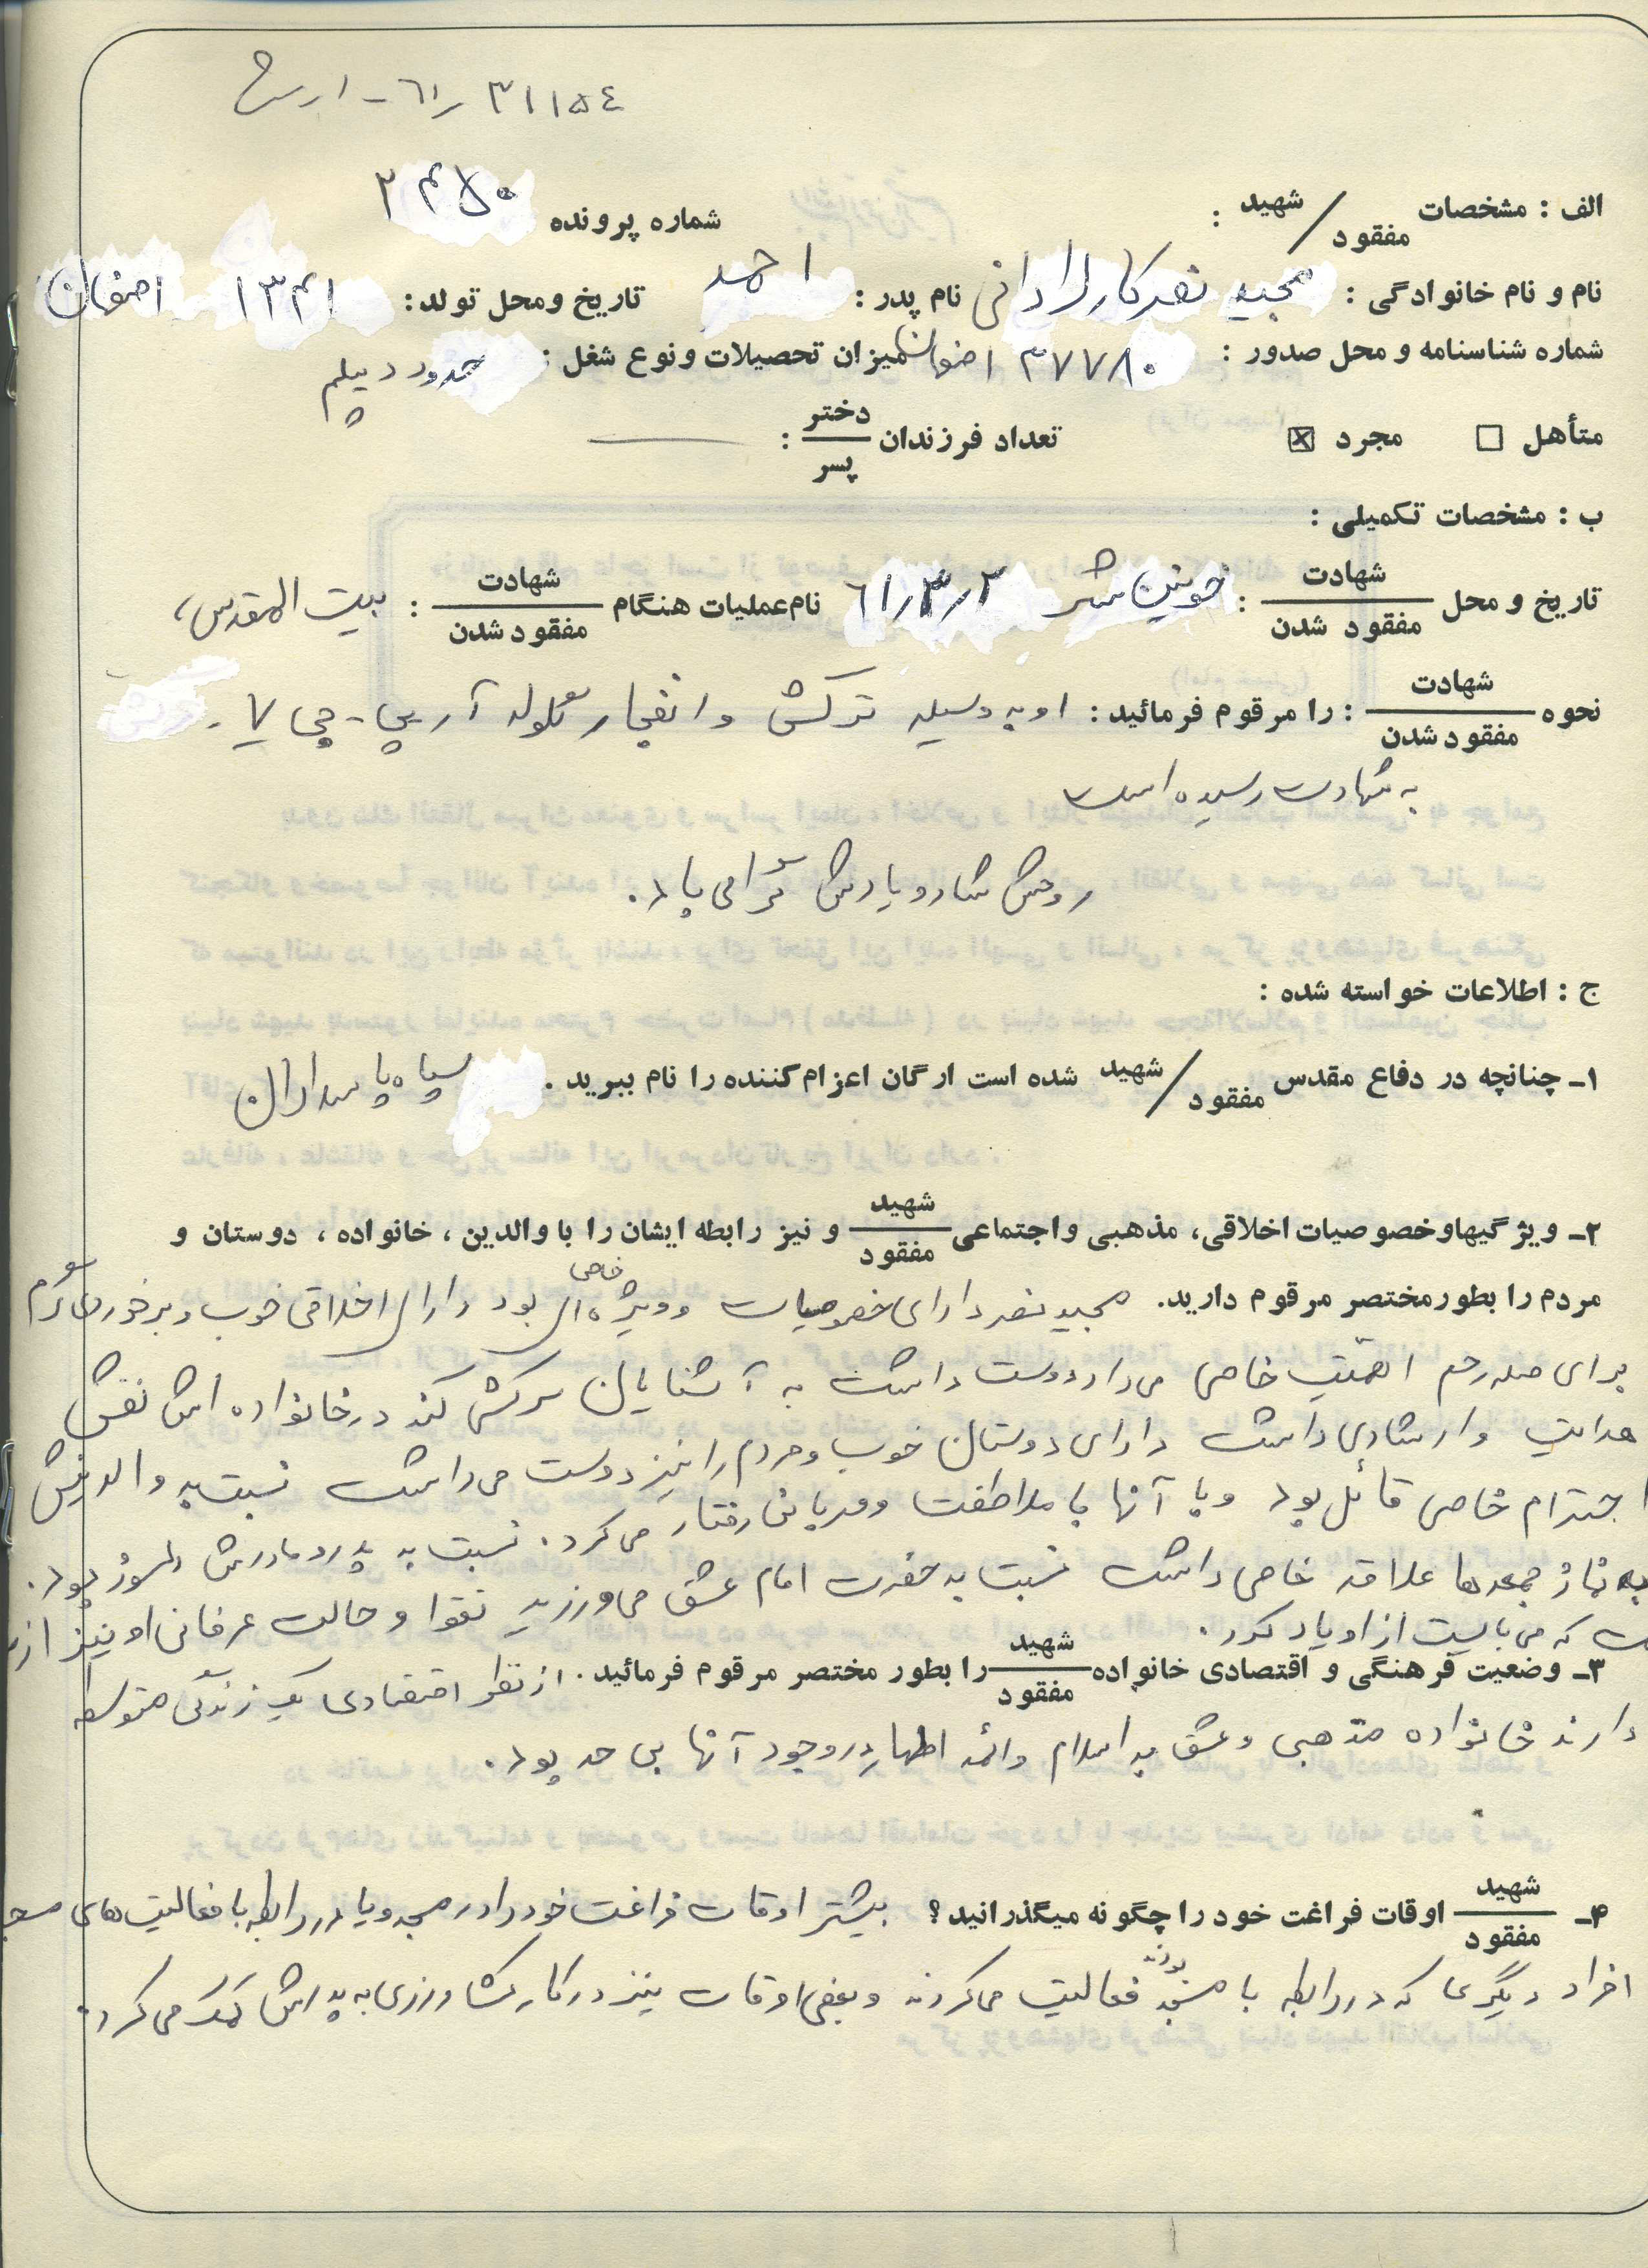 ۳۱۱۵٤ ر٦١ - ا
الف : مشخصات شهید / مفقود :
شماره پرونده ۲۴۵۰
نام و نام خانوادگی : مجید نصر کارلادانی نام پدر : احمد تاریخ و محل تولد : ۱۳۴۱ اصفهان
شماره شناسنامه و محل صدور : ۳۷۷۸۰ اصفهان میزان تحصیلات و نوع شغل : حدود دیپلم
متأهل ☐ مجرد ☒ تعداد فرزندان دختر / پسر :
ب : مشخصات تکمیلی :
تاریخ و محل شهادت / مفقود شدن : خونین شهر ٦١٫٣٫٢ نام عملیات هنگام شهادت / مفقود شدن : بیت المقدس،
نحوه شهادت / مفقود شدن : را مرقوم فرمائید : او به وسیله ترکش و انفجار گلوله آر پی - جی ۷ -
به شهادت رسیده است
روحش شاد و یادش گرامی باد.
ج : اطلاعات خواسته شده :
۱ـ چنانچه در دفاع مقدس شهید / مفقود شده است ارگان اعزام کننده را نام ببرید . سپاه پاسداران
۲ـ ویژگیها و خصوصیات اخلاقی، مذهبی و اجتماعی شهید / مفقود و نیز رابطه ایشان را با والدین ، خانواده ، دوستان و
مردم را بطور مختصر مرقوم دارید. مجید نصر دارای خصوصیات و ویژه ای خاصی بود دارای اخلاقی خوب و برخوردی گرم
برای صله رحم اهمیت خاصی می داد دوست داشت به آشنایان سرکشی کند در خانواده اش نقش
هدایت و ارشادی داشت دارای دوستان خوب و مردم را نیز دوست می داشت نسبت به والدینش
احترام خاصی قائل بود و با آنها با ملاطفت و مهربانی رفتار می کرد . نسبت به پدر و مادرش دلسوز بود.
به نماز جمعه ها علاقه خاصی داشت نسبت به حضرت امام عشق می ورزید تقوا و حالت عرفانی او نیز از
که می بایست از او یاد کرد .
۳ـ وضعیت فرهنگی و اقتصادی خانواده شهید / مفقود را بطور مختصر مرقوم فرمائید . از نظر اقتصادی یک زندگی متوسط
دارند خانواده مذهبی و عشق به اسلام و ائمه اطهار در وجود آنها بی حد بود.
۴ـ شهید / مفقود اوقات فراغت خود را چگونه میگذرانید ؟ بیشتر اوقات فراغت خود را در مسجد و یا در رابطه با فعالیت های
افراد دیگری که در رابطه با مسجد بودند فعالیت می کردند و بعضی اوقات نیز در کار کشاورزی به پدرش کمک می کرد.